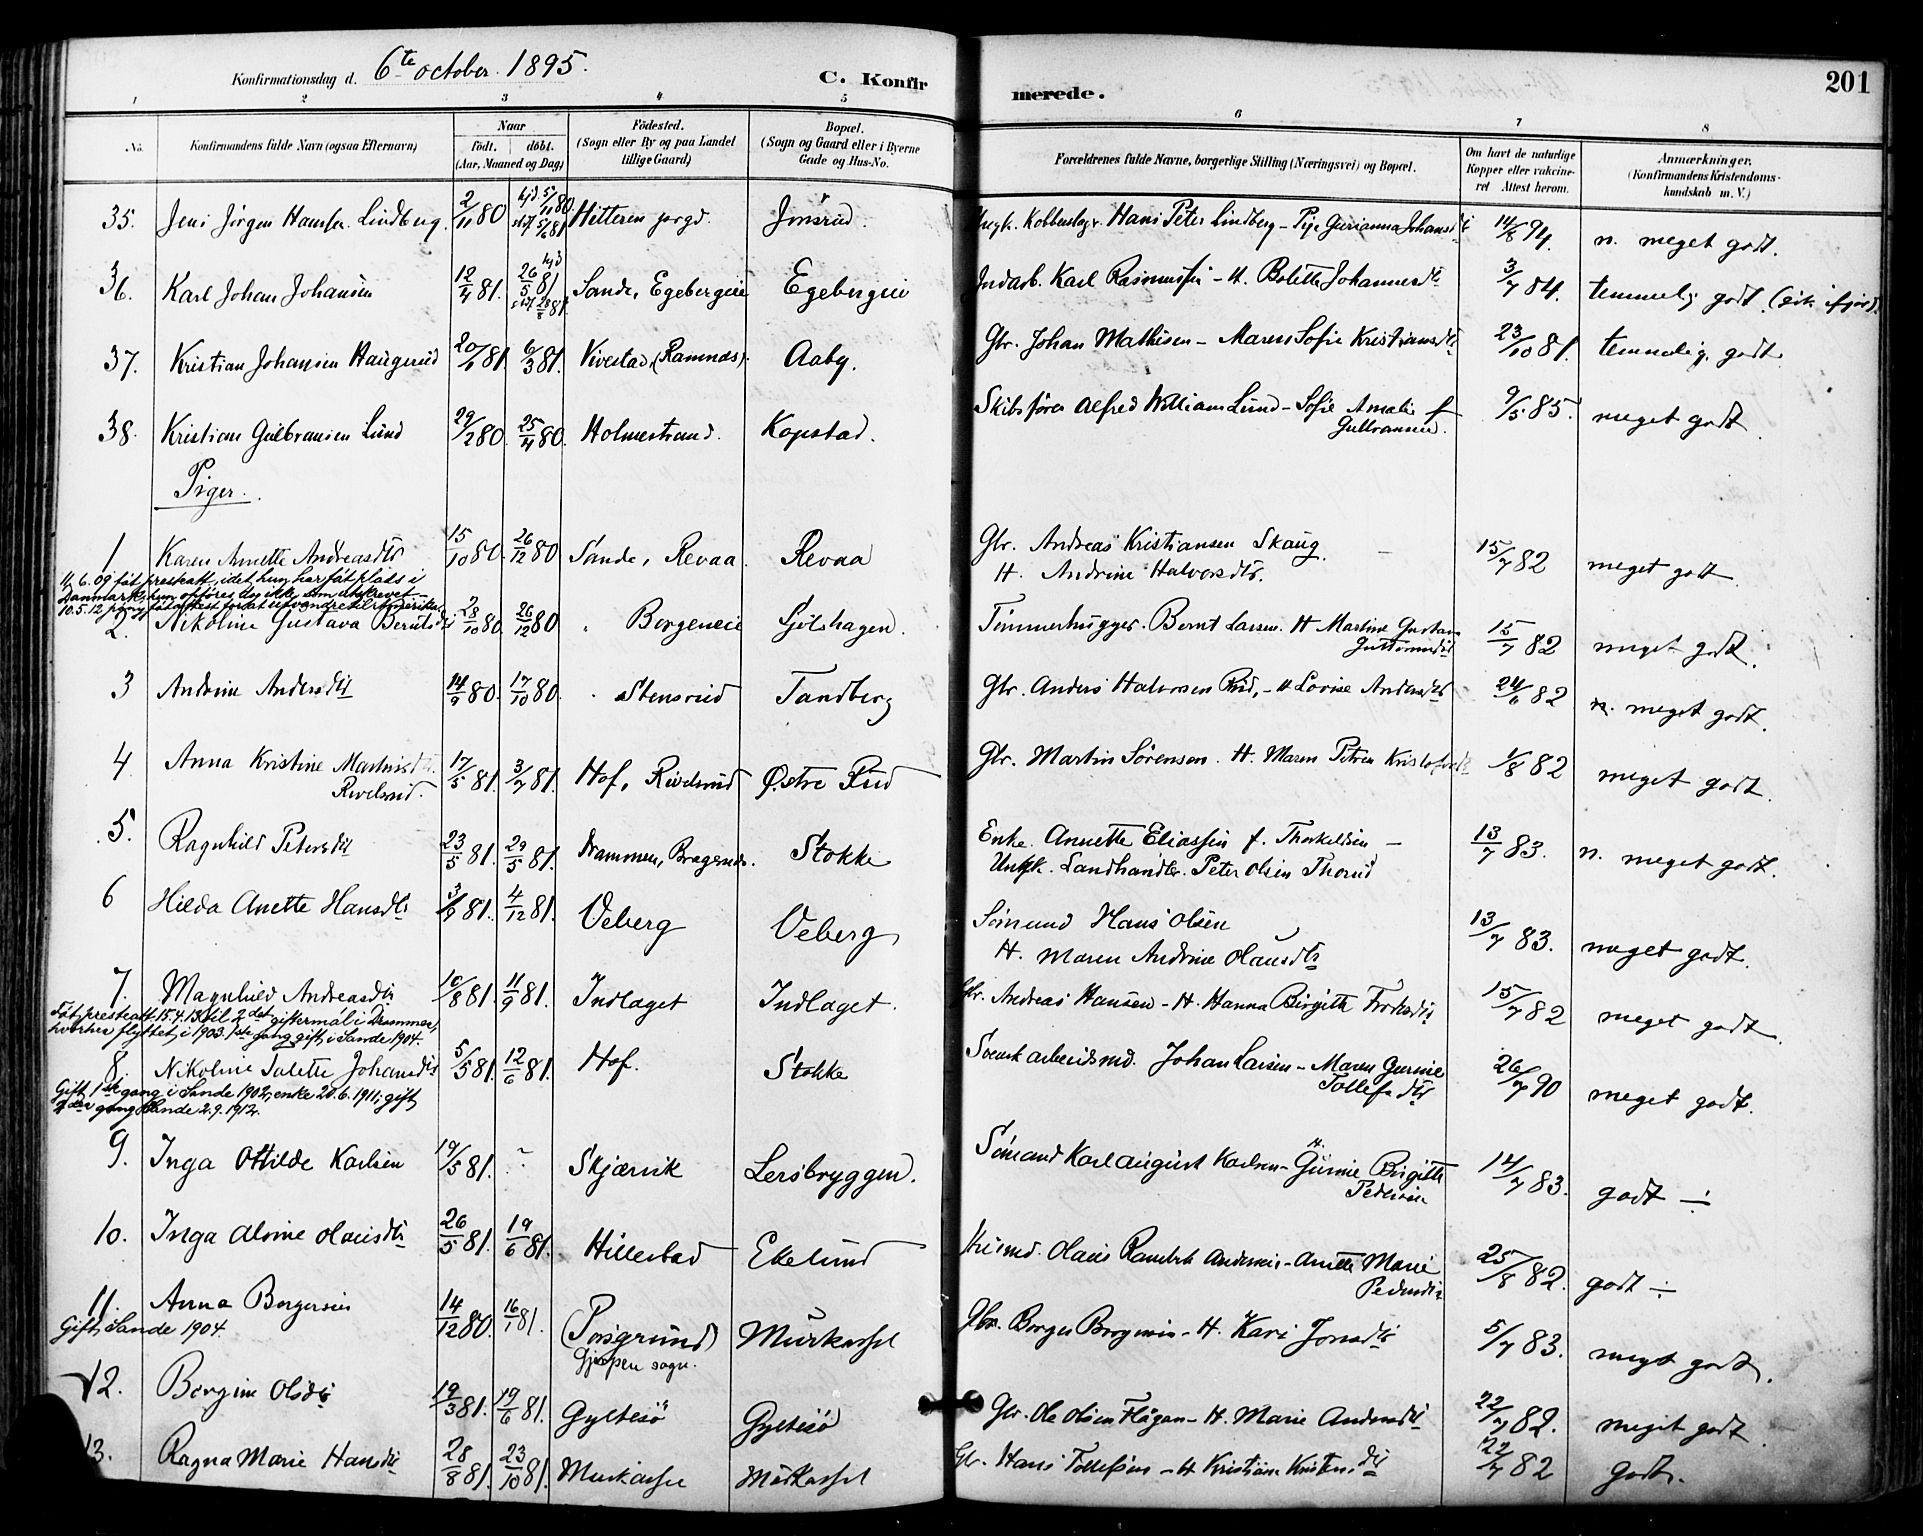 Konfirmationsdag d. 6te october 1895.
C. Konfirmerede.
201
1 2 3 4 5 6 7 8
No.
Konfirmandens fulde Navn (ogsaa Efternavn)
Naar
födt. döbt.
(Aar, Maaned og Dag)
Födested.
(Sogn eller By og paa Landet
tillige Gaard)
Bopæl.
(Sogn og Gaard eller i Byerne
Gade og Hus-No.
Forældrenes fulde Navne, borgerlige Stilling (Næringsvei) og Bopæl.
Om havt de naturlige
Kopper eller vakcine-
ret Attest herom.
Anmærkninger.
(Konfirmandens Kristendoms-
kundskab m. V.)
35. Jens Jörgen Hansen Lindberg 2/11 80 hjd 5/11 80 Hitteren Jonsrud. Hans Peter Lindberg - Pige Gurianna Johansdt 14/8 94. n. meget godt.
36. Karl Johan Johansen 12/4 81. 26/5 81 Sande, Egebergeie Egebergeie Indarb. Karl Rasmussen - H. Bolette Johannesdt 3/7 84. temmelig godt.
37. Kristian Johansen Haugerud 20/1 81 6/3 81. Vivestad, (Ramnæs) Aaby. Gbr. Johan Mathisen - Maren Sofie Kristiansdt 23/10 81. temmelig godt.
38. Kristian Gulbransen Lund 29/2 80. 25/4 80. Holmestrand. Kopstad. Skibsförer Alfred William Lund - Sofie Amalie f.
Gulbransen. 9/5 85. meget godt
Piger.
1 Karen Annette Andreasdtr 15/10 80. 26/12 80 Sande, Revaa. Revaa Gbr. Andreas Kristiansen Skaug.
H. Andrine Halvorsdtr. 15/7 82 meget godt
11.6.09 fåt presteatt, idet hun har fåt plads i
Danmark, hun opföres dog ikke som utskrevet.
10.5.12 påny fåt attest for at utvandre til Amerika
2. Nikoline Gustava Berntsdt 28/10 80. 26/12 80 " Borgeneie Sjölshagen. Tömmerhugger. Bernt Larsen. H Martine Gustava
Guttormsdt 15/7 82 meget godt.
3 Andrine Andersdt 14/9 80. 17/10 80. " Stensrud Tandberg Gbr. Anders Halvorsen Rud, - H Lovise Andersdtr 24/6 82 n. meget godt.
4 Anna Kristine Martinsdt.
Rivelsrud. 17/5 81. 3/7 81. Hof, Rivelsrud Østre Rud Gbr. Martin Sörensen. H. Maren Petrea Kristofersdt 1/8 82 meget godt.
5. Ragnhild Petersdt 23/5 81. 29/5 81. Drammen, Bragernæs. Stokke Enke Annette Eliassen f. Thorkeldsen -
Ungk. Landhandler. Peter Olsen Thorud 13/7 83. n. meget godt.
6 Hilda Anette Hansdtr 3/9 81. 4/12 81. Veberg Veberg Sömand Hans Olsen
H. Maren Andrine Olausdtr 13/7 83. meget godt.
7. Magnhild Andreasdtr 10/8 81. 11/9 81. Indlaget Indlaget. Gbr. Andreas Hansen - H. Hanna Birgitte 15/7 82 meget godt
Fåt presteatt. 15.4.13 til 2det giftermål i Drammen,
hvorhen flyttet i 1903. 1ste gang gift i Sande 1904.
8. Nikoline Julette Johansdtr 5/5 81. 12/6 81. Hof. Stokke Svensk arbeidsmd. Johan Larsen - Maren Gurine
Tollefsdtr 26/7 90 meget godt.
Gift 1ste gang i Sande 1902, enke 20.6.1911, gift
2den gang Sande 2.9.1912.
9. Inga Ottilde Karlsen 19/5 81. ~ Skjærvik Lersbryggen. Sömand Karl August Karlsen - H. Gurine Birgitte
Pedersen 14/7 83. godt ÷
10. Inga Alvine Olausdtr 26/5 81. 19/6 81. Hillestad Ekelund Husmd. Olaus Andersen - Anette Marie
Pedersdtr 25/8 82. godt ÷
11. Anna Borgersen 14/12 80. 16/1 81. (Porsgrund)
Gjerpen sogn. Murkassel Gbr. Borger Borgersen - H. Kari Jonsdtr 5/7 83. meget godt.
Gift, Sande 1904.
12. Bergine Olsdtr 19/3 81. 19/6 81. Gyltesö Gyltesö Gbr. Ole Olsen Hagen - H. Marie Andersdt 22/7 82. meget godt
13. Ragna Marie Hansdt 28/8 81. 23/10 81. Murkassel Murkassel Gbr. Hans Tollefsen - H Kristiane Kristensdt 22/7 82 godt.